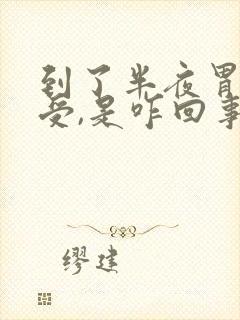 到了半夜胃
受,是咋回事
缪建